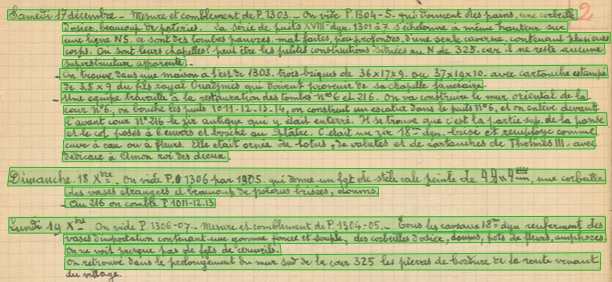 Samedi 17 décembre - Mesure et comblement de P.1303. - On vide P.1304-5. qui donnent des pains, une corbeille
d'osier, beaucoup de poteries. La série de puits XVIII-dyn. 1301 à 7. s'échelonne à même hauteur sur
une ligne NS. Ce sont des tombes pauvres, mal faites, peu profondes, d'une seule caverne, contenant plusieurs
corps. Où sont leurs chapelles? peut être les petites constructions situées au N de 325. car il ne reste aucune
superstructure apparente. -
On trouve dans une maison à l'est de 1303. trois briques de 36x17x9. ou 37x19x10. avec cartouche estampé
de 3,5 x 9 du fils royal Ouazmès qui doivent provenir de sa chapelle funéraire.
Une équipe travaille à la restauration des tombes n° 6 et 216. On va construire le mur oriental de la
cour N°6, on bouche les puits 1011-12-13. on construit un escalier dans le puits N°6, et on enlève devant
l'avant cour N° 216 le zir antique qui y était enterré. Il se trouve que c'est la partie sup. de la panse
et le col posés à l'envers et bouché au plâtre. C'était un zir 18e dyn. brisé et remployé comme
cuve à eau ou à fleurs. Elle était ornée de lotus, de volutes et de cartouches de Thotmès III. avec
dédicace à Amon roi des dieux.
Dimanche. 18 Xbre - On vide P. 1306 par 1305. qui donne un fgt de stèle calc. peinte de une corbeille
des vases étrangers et beaucoup de poteries brisées, doums.
- Au 216 on comble P 1011-12.13
Lundi 19 Xbre - On vide P.1306-07 - Mesure et comblement de P.1304-05. - Tous les caveaux 18me dyn renferment des
vases d'importation contenant une gomme foncée et souple, des corbeilles d'osier, doums, pots de fleurs, amphores
On ne voit presque pas de fgts de cercueils.
On retrouve dans le prolongement du mur sud de la cour 325 les pierres de bordure de la route venant
du village.
2